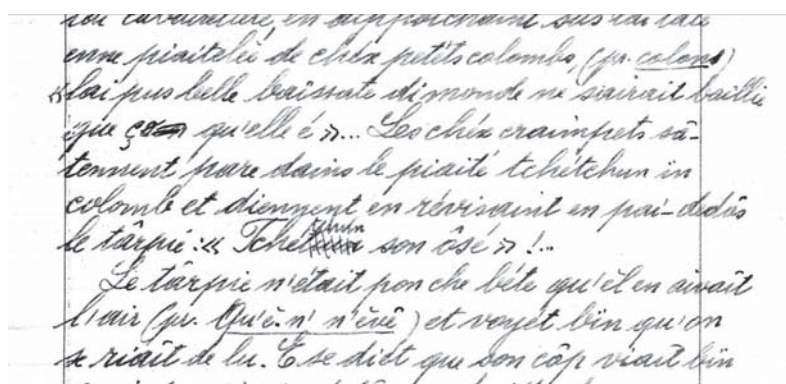 en approchaint sus lai tâle
enne piaitelèe de chéx petits colombs, (pr. colons)
« lai pus belle baîssate di monde ne sairait baillie
que ço qu'elle é »... Les chéx craimpets sâ-
tennent pare dains le piaité tchétchun in
colomb et diennent en révisaint en pai-dedôs
le târpie : « Tchétchun son ôsé » !..
Le târpie n'était pon che béte qu'èl en aivait
l'air (pr. Qu'è. n' n'èvê) et voyét bïn qu'on
se riait de lu. E se diét que son côp viait bïn